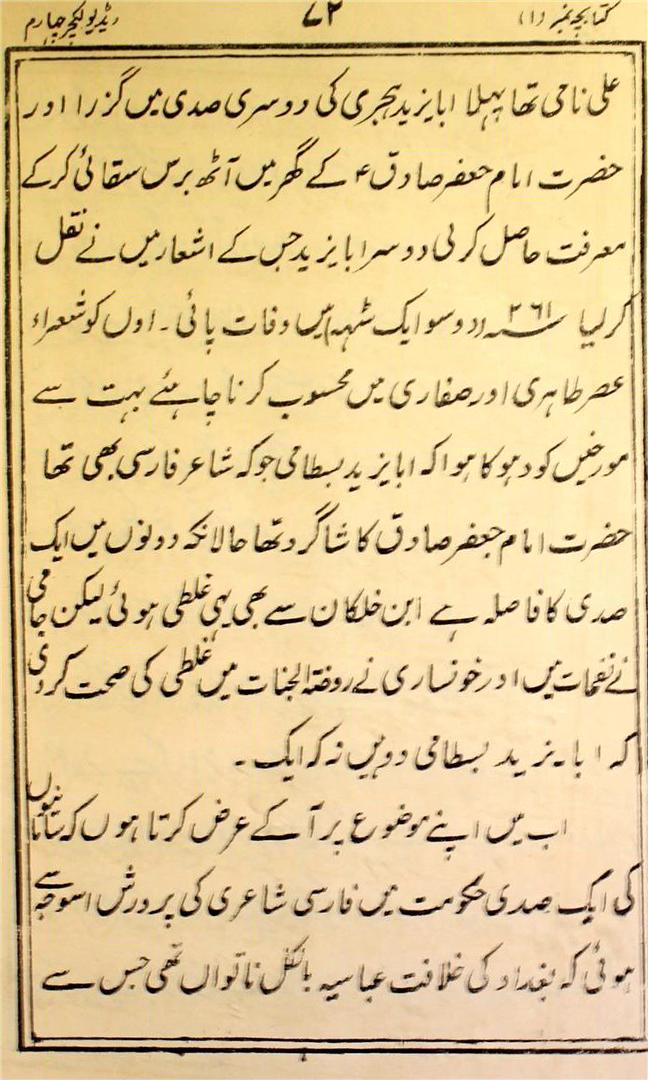 کتابچہ نمبر (۱) ۷۲ ریڈیو لیکچر چہارم
علی نامی تھا پہلا ابایزید ہجری کی دوسری صدی میں گزرا اور
حضرت امام جعفر صادق ؑ کے گھر میں آٹھ برس سقائی کر کے
معرفت حاصل کر لی دوسرا بایزید جس کے اشعار میں نے نقل
کر لیا ۲۶۱ (دوسو ایک شہہ) میں وفات پائی۔ اوں کو شعراء
عصر طاہری اور صفاری میں محسوب کرنا چاہئے بہت سے
مورخین کو دہوکا ہوا کہ ابایزید بسطامی جو کہ شاعر فارسی بھی تھا
حضرت امام جعفر صادق کا شاگرد تھا حالانکہ دونوں میں ایک
صدی کا فاصلہ ہے ابن خلکان سے بھی یہی غلطی ہوئی لیکن جامی
نے نفحات میں اور خونساری نے روضتہ الجنات میں غلطی کی صحت کر دی
کہ ابا۔یزید بسطامی دو ہیں نہ کہ ایک۔
اب میں اپنے موضوع پر آ کے عرض کرتا ہوں کہ سامانیوں
کی ایک صدی حکومت میں فارسی شاعری کی پرورش اسوجہ سے
ہوئی کہ بغداد کی خلافت عباسیہ بالکل ناتواں تھی جس سے